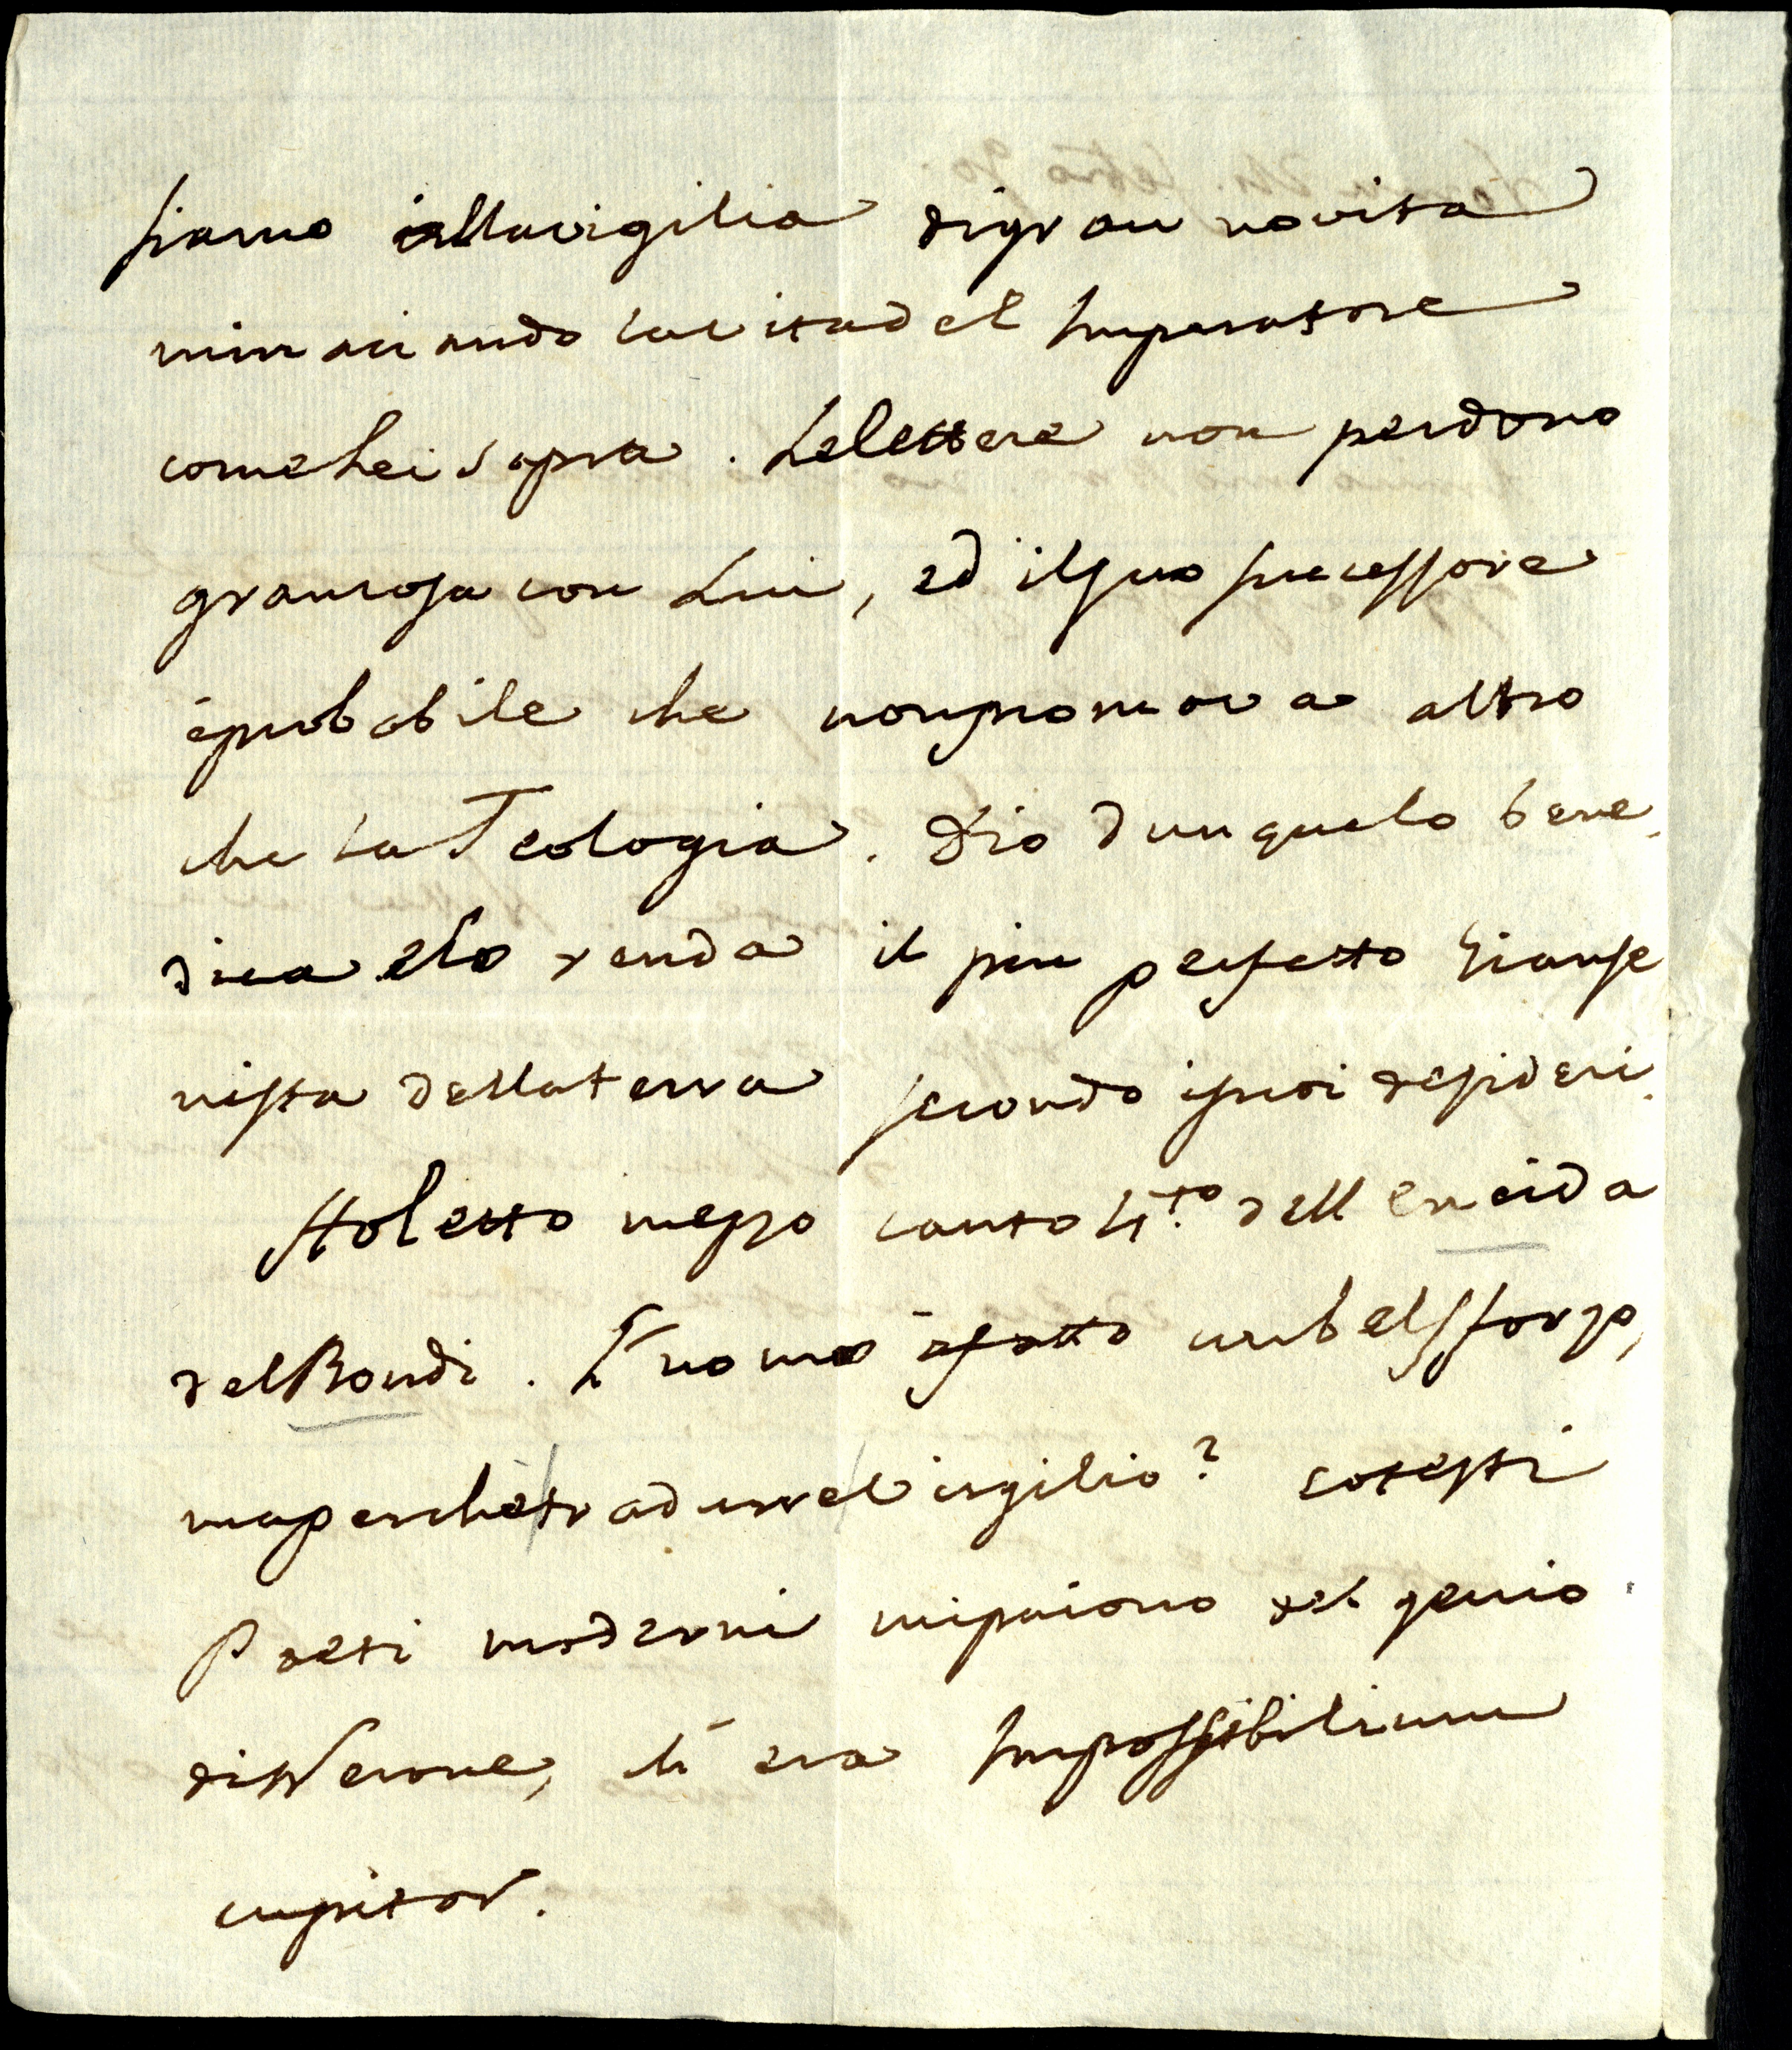 siamo allavigilia digran novita
minaciando lavitadel Imperatore
comeLei sapra. Lelettere non perdono
grancosa con Lui, ed ilsuo successore
éprobabile che nonpromova altro
che la Teologia. Dio dunquelo bene
dica elo renda il piu perfetto Gianse
nista dellaterra secondo isuoi desideri.
Holetto mezzo canto 4.to dell eneida
delBondi. L'uomo áfatto unbelsforzo,
maperchetradurreVirgilio? cotesti
Poeti moderni mipaiono del genio
diNerone, ch'era Impossibilium
cupitor.